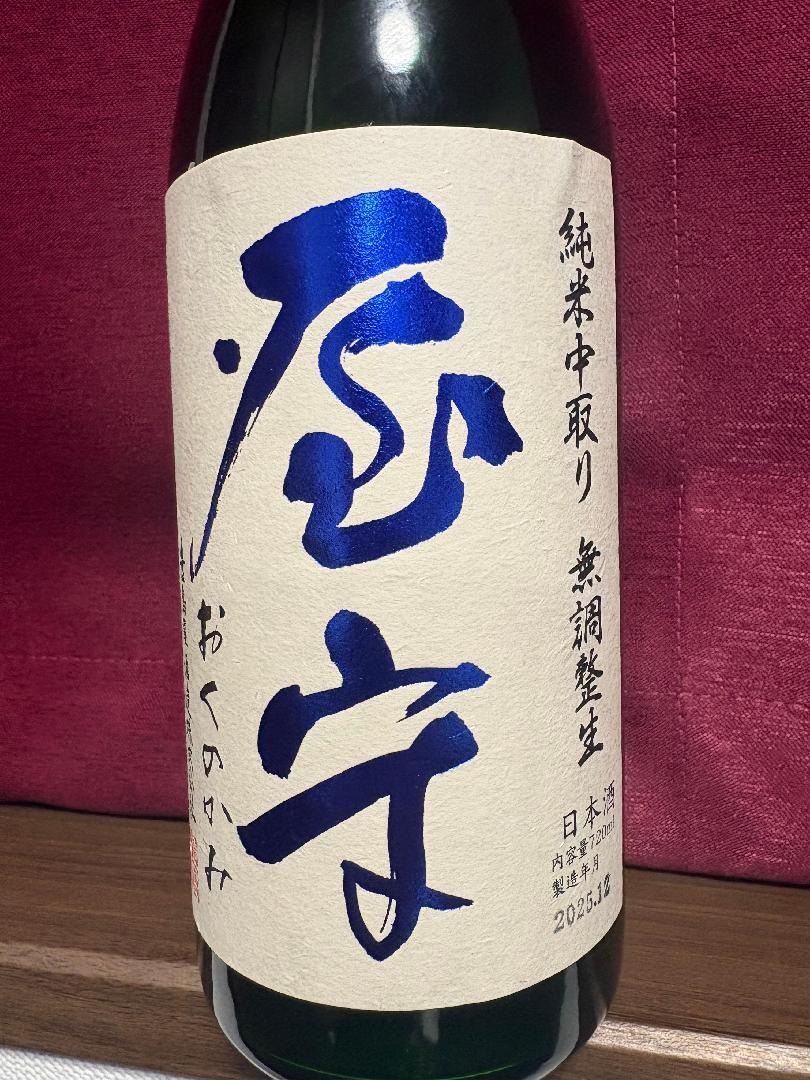 純米中取り 無調整生
日本酒
内容量720ml
製造年月
2025.12
屋守
おくのかみ